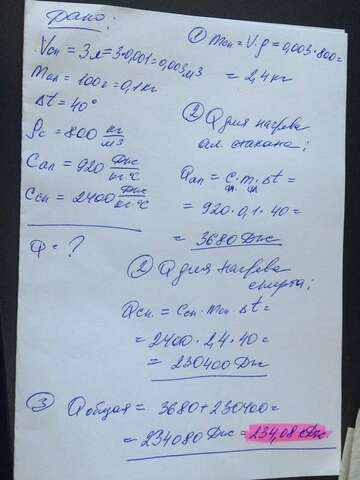 Дано:
Vсп = 3 л = 3·0,001 = 0,003 м3
mал = 100 г = 0,1 кг
Δt = 40°
ρс = 800 кг/м3
Cал = 920 Дж/кг·°C
Cсп = 2400 Дж/кг·°C
Q = ?
① mсп = V·ρ = 0,003·800 =
= 2,4 кг
② Q для нагрева
ал стакана;
Qал = c ал m ал Δt =
= 920·0,1·40 =
= 3680 Дж
② Q для нагрева
спирта;
Qсп = Cсп·mсп Δt =
= 2400·2,4·40 =
= 230400 Дж
③ Qобщая = 3680+230400 =
= 234080 Дж = 234,08 кДж